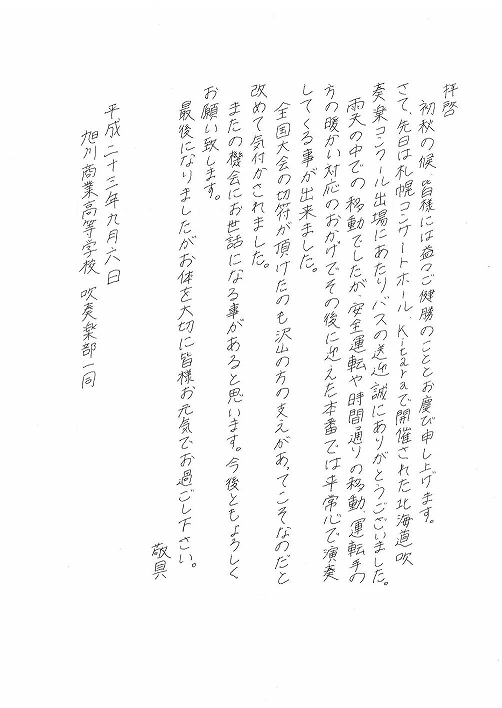 拝啓
初秋の候、皆様には益々ご健勝のこととお慶び申し上げます。
さて、先日は札幌コンサートホールKitaraで開催された北海道吹
奏楽コンクール出場にあたりバスの送迎誠にありがとうございました。
雨天の中での移動でしたが、安全運転や時間通りの移動、運転手の
方の暖かい対応のおかげでその後に迎えた本番では平常心で演奏
してくる事が出来ました。
全国大会の切符が頂けたのも沢山の方の支えがあってこそなのだと
改めて気付かされました。
またの機会にお世話になる事があると思います。今後ともよろしく
お願い致します。
最後になりましたがお体を大切に皆様お元気でお過ごし下さい。
敬具
平成二十三年九月六日
旭川商業高等学校 吹奏楽部一同